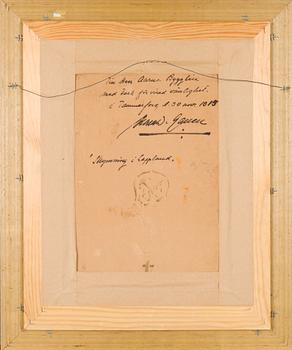 Till Herr Aarne
med tack för visad vänlighet.
i Tammerfors d. 30 nov. 1918
"Skymning i Lappland.